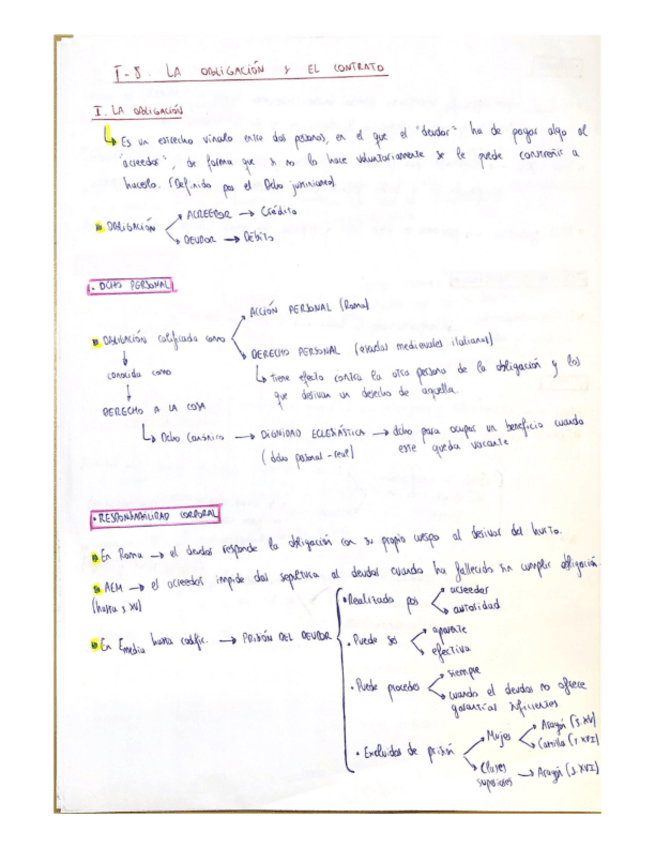 T-8. LA OBLIGACIÓN Y EL CONTRATO
I. LA OBLIGACIÓN
Es un estrecho vínculo entre dos personas, en el que el "deudor" ha de pagar algo al
"acreedor", de forma que si no lo hace voluntariamente se le puede constreñir a
hacerlo. (Definida por el Dcho justinianeo)
OBLIGACIÓN
ACREEDOR → Crédito
DEUDOR → Débito
• DCHO PERSONAL
ACCIÓN PERSONAL (Roma)
OBLIGACIÓN calificada como
DERECHO PERSONAL (escuelas medievales italianas)
tiene efecto contra la otra persona de la obligación y los
que derivan un derecho de aquella.
conocida como
DERECHO A LA COSA
Dcho Canónico → DIGNIDAD ECLESIÁSTICA → dcho para ocupar un beneficio cuando
(dcho personal-real) este queda vacante
• RESPONSABILIDAD CORPORAL
En Roma → el deudor responde la obligación con su propio cuerpo al derivar del hurto.
AEM → el acreedor impide dar sepultura al deudor cuando ha fallecido sin cumplir obligación.
(hasta s. XV)
• Realizado por
acreedor
autoridad
En Emedia hasta codific. → PRISIÓN DEL DEUDOR
• Puede ser
aparente
efectiva
• Puede proceder
siempre
cuando el deudor no ofrece
garantías suficientes
• Excluidos de prisión
Mujer
Aragón (s. XV)
Castilla (s. XVI)
Clases
superiores → Aragón (s. XVI)